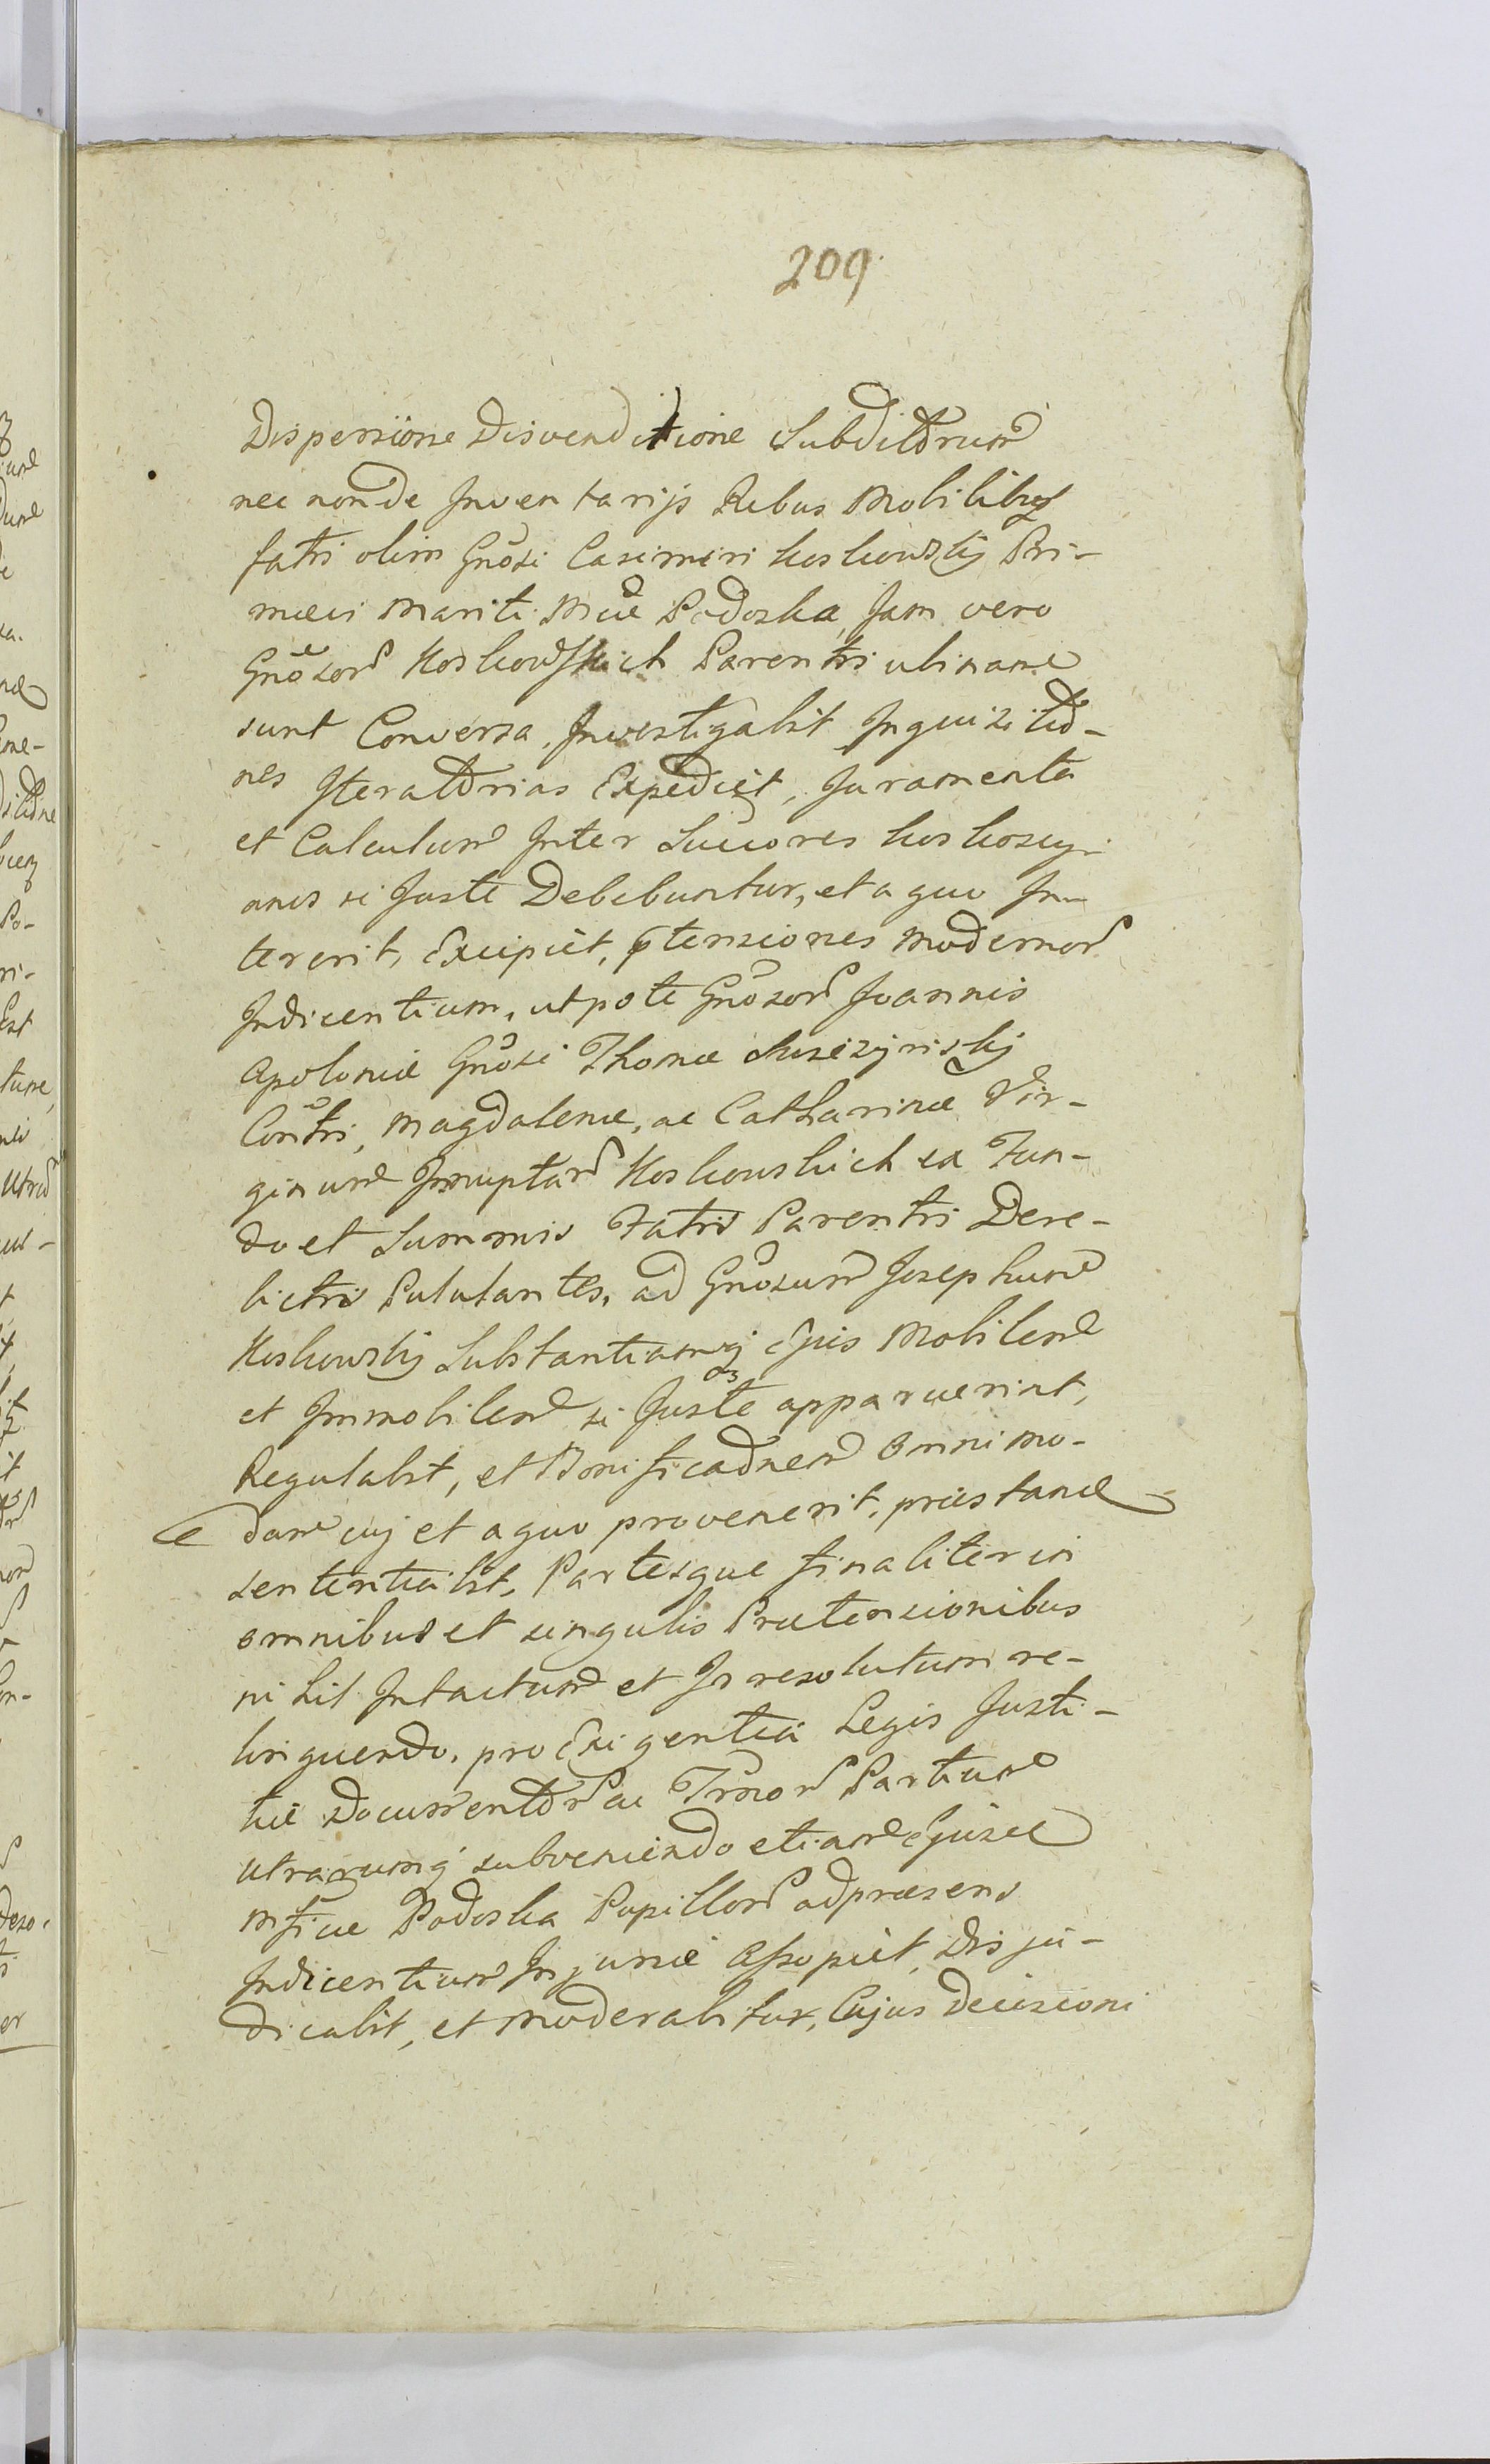 209
Dispersione Disvenditione Subditorum
nec non de Inventarijs Rebus Mobilibus
fatti olim Gnosi Casimiri Koskowskij Pri-
maevi Mariti Mcae Podoska, Jam vero
Gnosor Koskowskich Parentis ubinam
sunt Conversa, Investigabit Inquisitio-
nes Iteratorias Expediet, Juramenta
et Calculum Inter Succores Koskoscy-
anos si Juste Debebuntur, et a quo In-
tererit, Excipiet, ptensiones modernor
Indicentium, utpote Gnosor Joannis
Apoloniae Gnosi Thomae
Contis, Magdalenae, ac Catharinae Vir-
ginum Innuptar Koskowskich ex Fun-
do et Summis Fatti Parentis Dere-
lictis Pululantes, ad Gnosum Josephum
Koskowskij Substantiamq Ejus Mobilem
et Immobilem si Juste apparuerint,
Regulabit, et Bonificaonem Omnimo-
dam cuj et a quo provenerit, praestand
sententiabit, Partesque finaliter in
omnibus et singulis Praetensionibus
nihil Intactum et Irresolutum re-
linquendo, pro Exigentia Legis Justi-
tiae Documentor ac Jrmor Partium
utrarumq subveniendo etiam Ejusd
Mficae Podoska Pupillor adpraesens
Indicentium Injuriae Assopiet, Disju-
dicabit, et moderabitur, Cujus decisioni